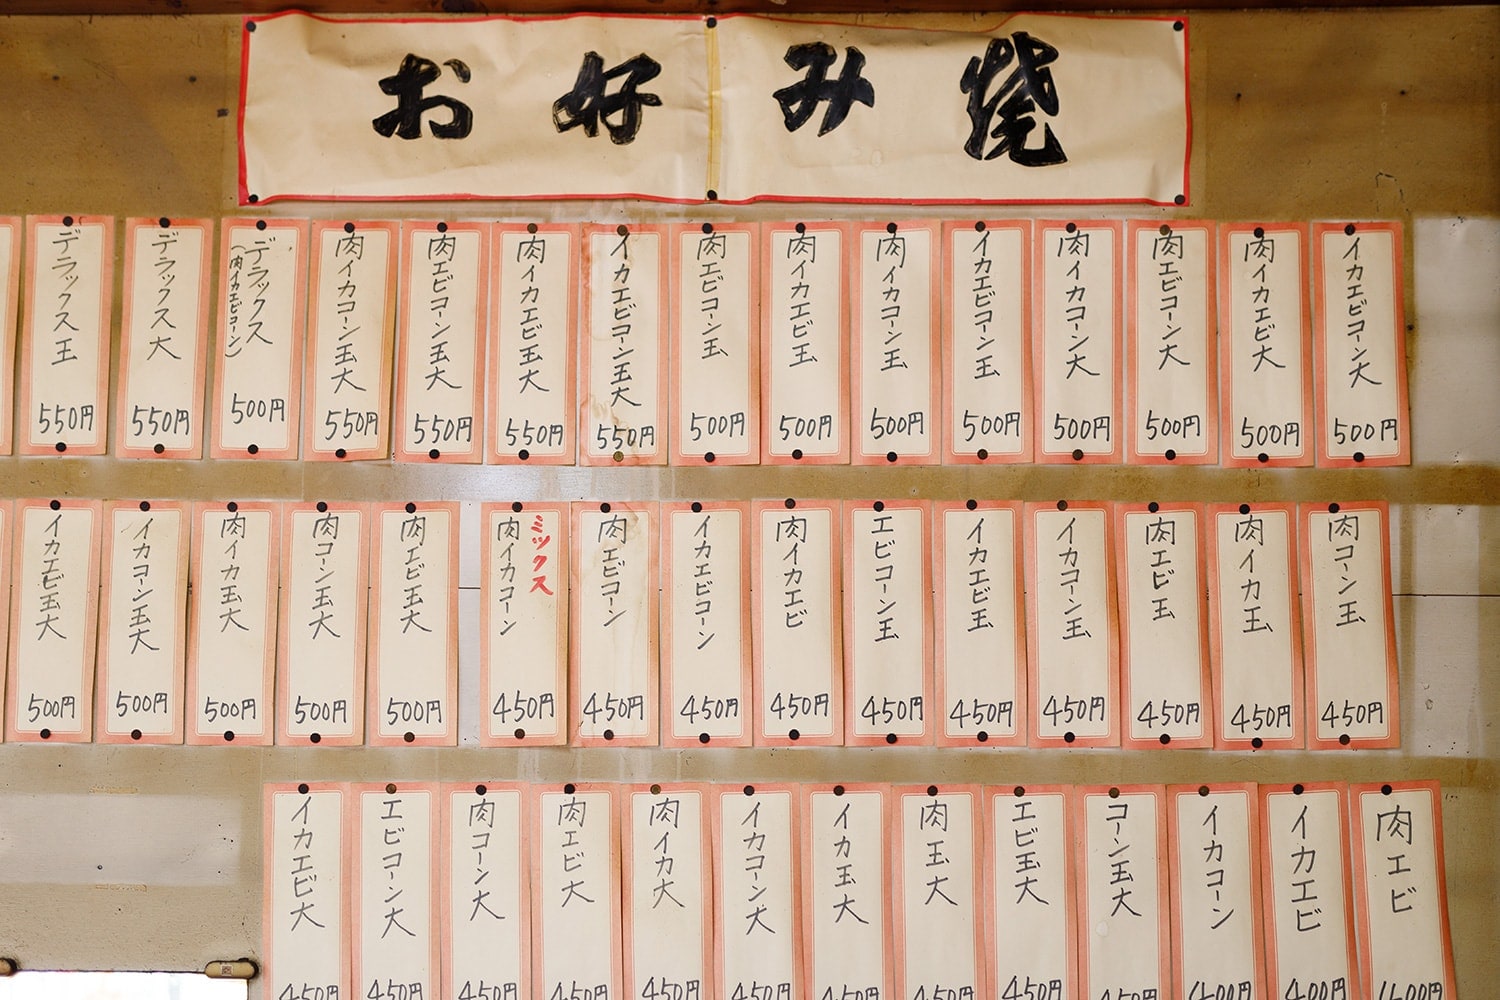 お好み焼
イカエビコーン大
500円
肉イカエビ大
500円
肉エビコーン大
500円
肉イカコーン大
500円
イカエビコーン玉
500円
肉イカコーン玉
500円
肉イカエビ玉
500円
肉エビコーン玉
500円
イカエビコーン玉大
550円
肉イカエビ玉大
550円
肉エビコーン玉大
550円
肉イカコーン玉大
550円
デラックス
(肉イカエビコーン)
500円
デラックス大
550円
デラックス玉
550円
肉コーン玉
450円
肉イカ玉
450円
肉エビ玉
450円
イカコーン玉
450円
イカエビ玉
450円
エビコーン玉
450円
肉イカエビ
450円
イカエビコーン
450円
肉エビコーン
450円
ミックス
肉イカコーン
450円
肉エビ玉大
500円
肉コーン玉大
500円
肉イカ玉大
500円
イカコーン玉大
500円
イカエビ玉大
500円
肉エビ
400円
イカエビ
400円
イカコーン
400円
コーン玉大
450円
エビ玉大
450円
肉玉大
450円
イカ玉大
450円
イカコーン大
450円
肉イカ大
450円
肉エビ大
450円
肉コーン大
450円
エビコーン大
450円
イカエビ大
450円